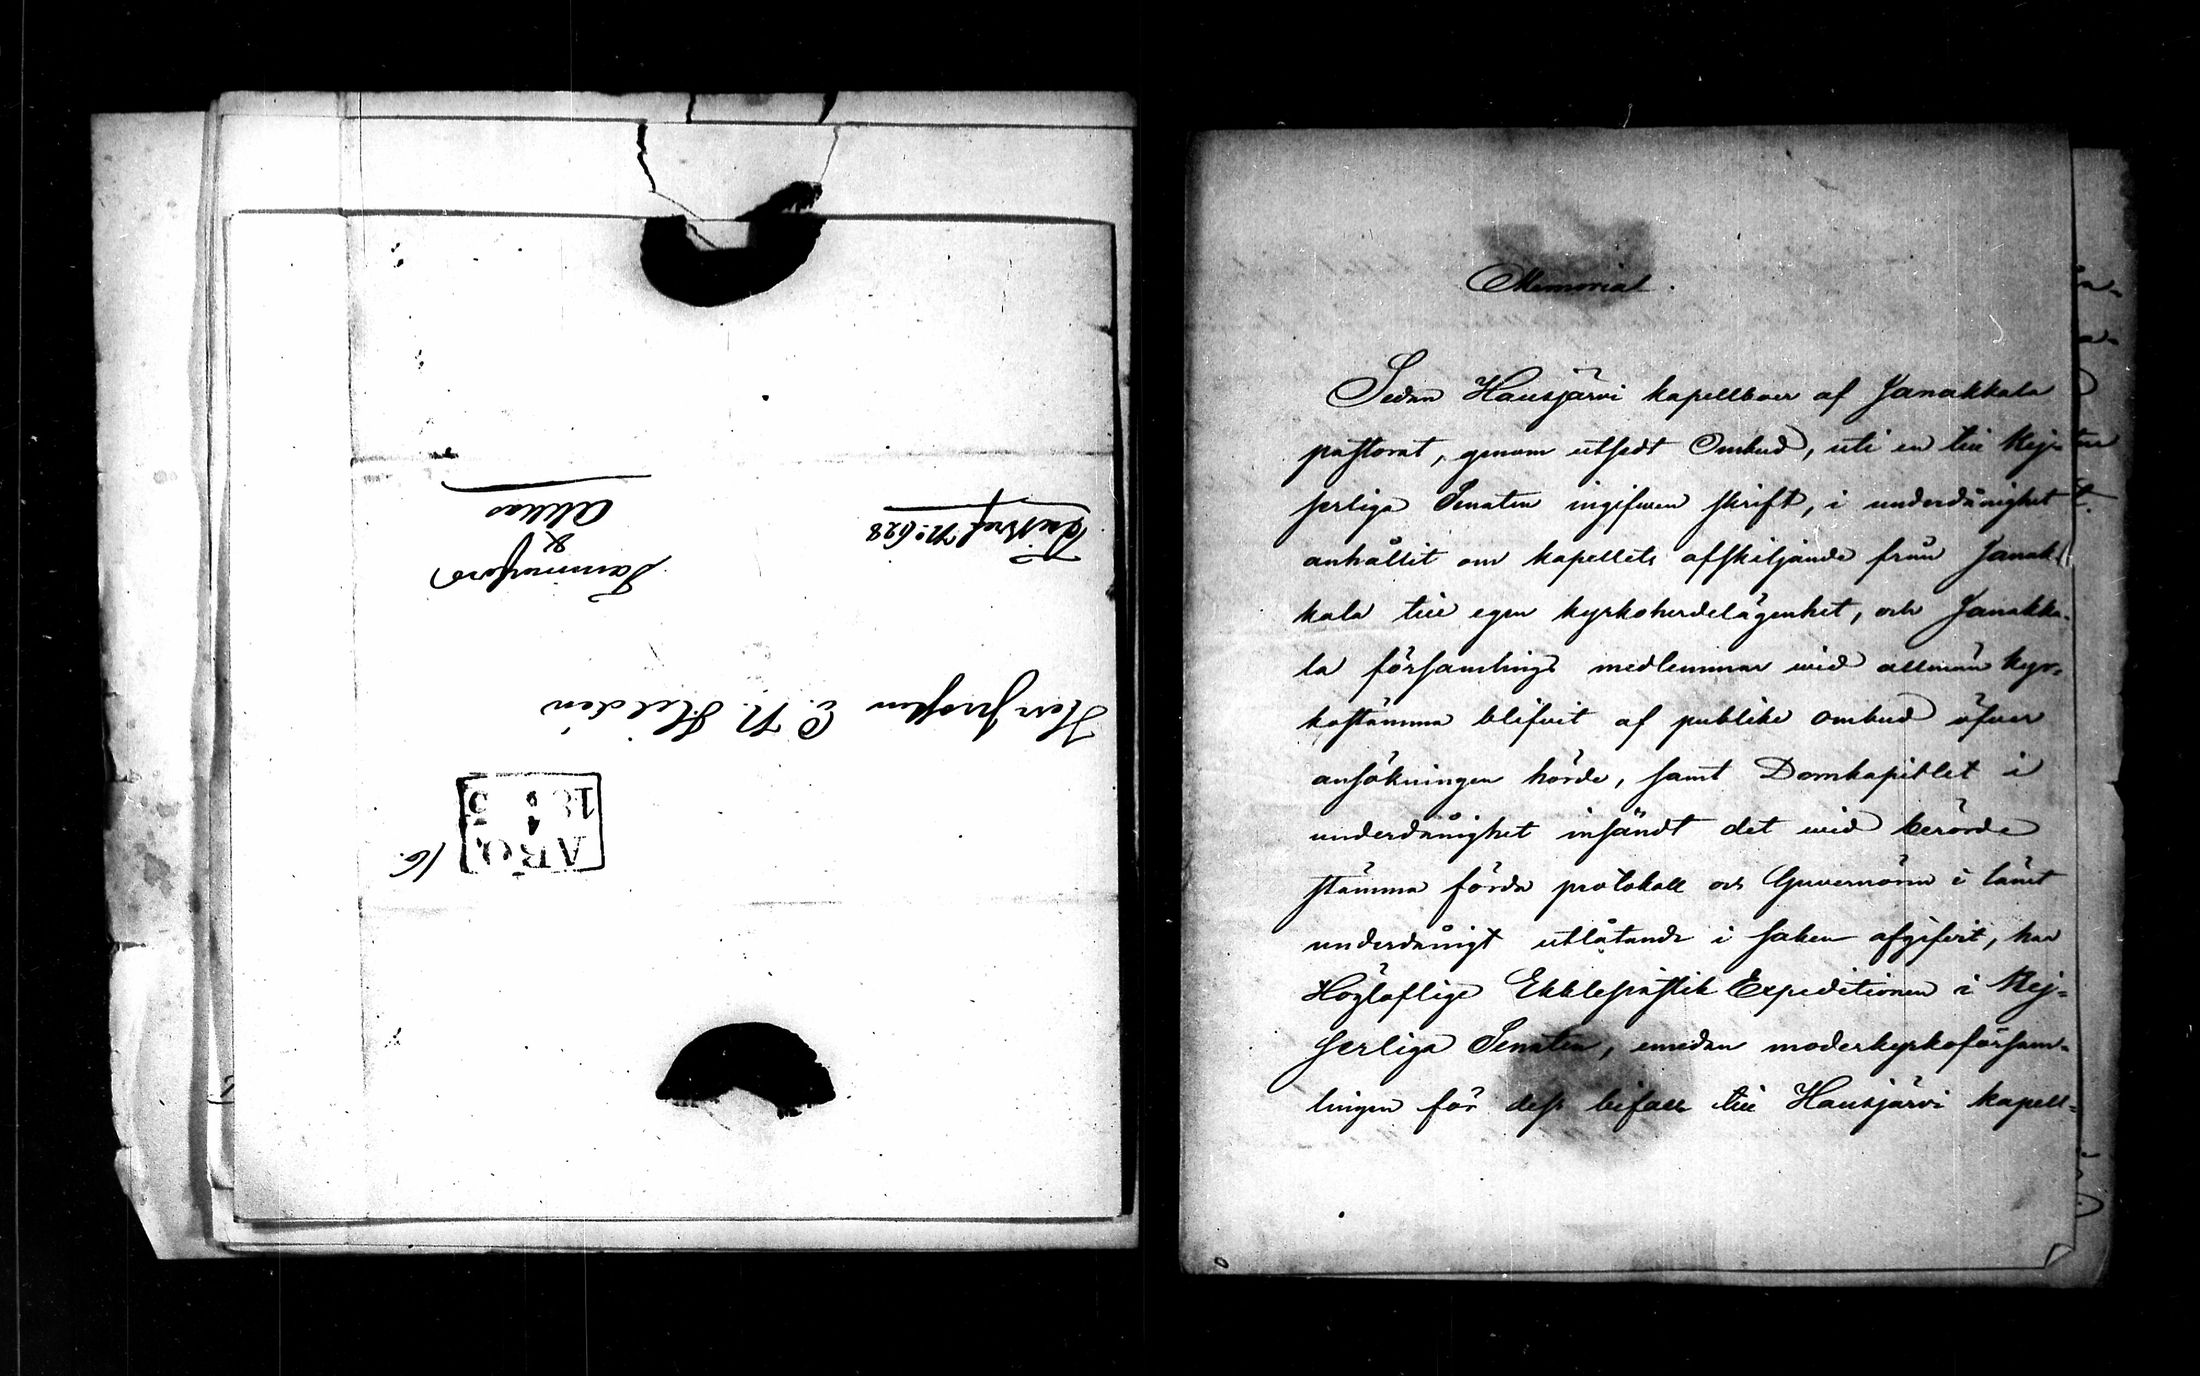 Herr Prosten C. N. Heldén
Tjenstbref No 628
Tammerfors
&
Akkas
16.
ÅBO,
4
1845
Memorial.
Sedan Hausjärvi kapellboer af Janakkala
pastorat, genom utsedt Ombud, uti en till Kej-
serliga Senaten ingifwen skrift, i underdånighet
anhållit om kapellets afskiljande från Janak-
kala till egen kyrkoherdelägenhet, och Janakka-
la församlings medlemmar wid allmän kyr-
kostämma blifvit af publike ombud öfver
ansökningen hörde, samt Domkapitlet i
underdånighet insändt det wid berörde
stämma förda protokoll och Guvernören i länet
underdånigt utlåtande i saken afgifvit, har
Höglofliga Ekklesiastik Expeditionen i Kej-
serliga Senaten, emedan moderkyrkoförsam-
lingen för dess bifall till Hausjärvi kapell-